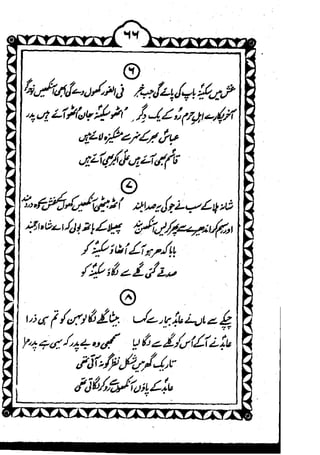 ۶۶
۶
غش میں سکینہؑ باپ کی پائے گی جب خبر
فی الفور کھول دے گی ابھی آنکھیں نوحہ گر
آخر پکارے اہلِ حرم رو کے یک دگر
اٹھو سکینہؑ جان اٹھو آئے ہیں پدر
عباسؑ بھر کے نہر سے مشکیزہ لائے ہیں
قاسمؑ بھی آئے ہیں علی اکبرؑ بھی آئے ہیں
۷
شانہ ہلا کے سب نے جو کی یہ صدا بلند
اٹھ بیٹھی آنکھیں کھول کے غش سے وہ دردمند
پھیلا کے ہاتھ بولی کہ اے شاہ ارجمند
بابا کدھر ہو آ کے اٹھاؤ سکینہؑ کو
صدقے گئی گلے سے لگاؤ سکینہؑ کو
۸
چپکے سے ماں نے عابدؑ بیمار سے کہا
بیٹا گلے لگا لو بہن کو تم ہی ذرا
عابدؑ نے آگے اس کو گلے سے لگا لیا
سمجھی وہ بے پدر کہ یہی ہے پدر مرا
تاریک گھر میں شکل نظر گو نہ آتی تھی
عابدؑ کے پاؤں آنکھوں سے رو کر لگاتی تھی